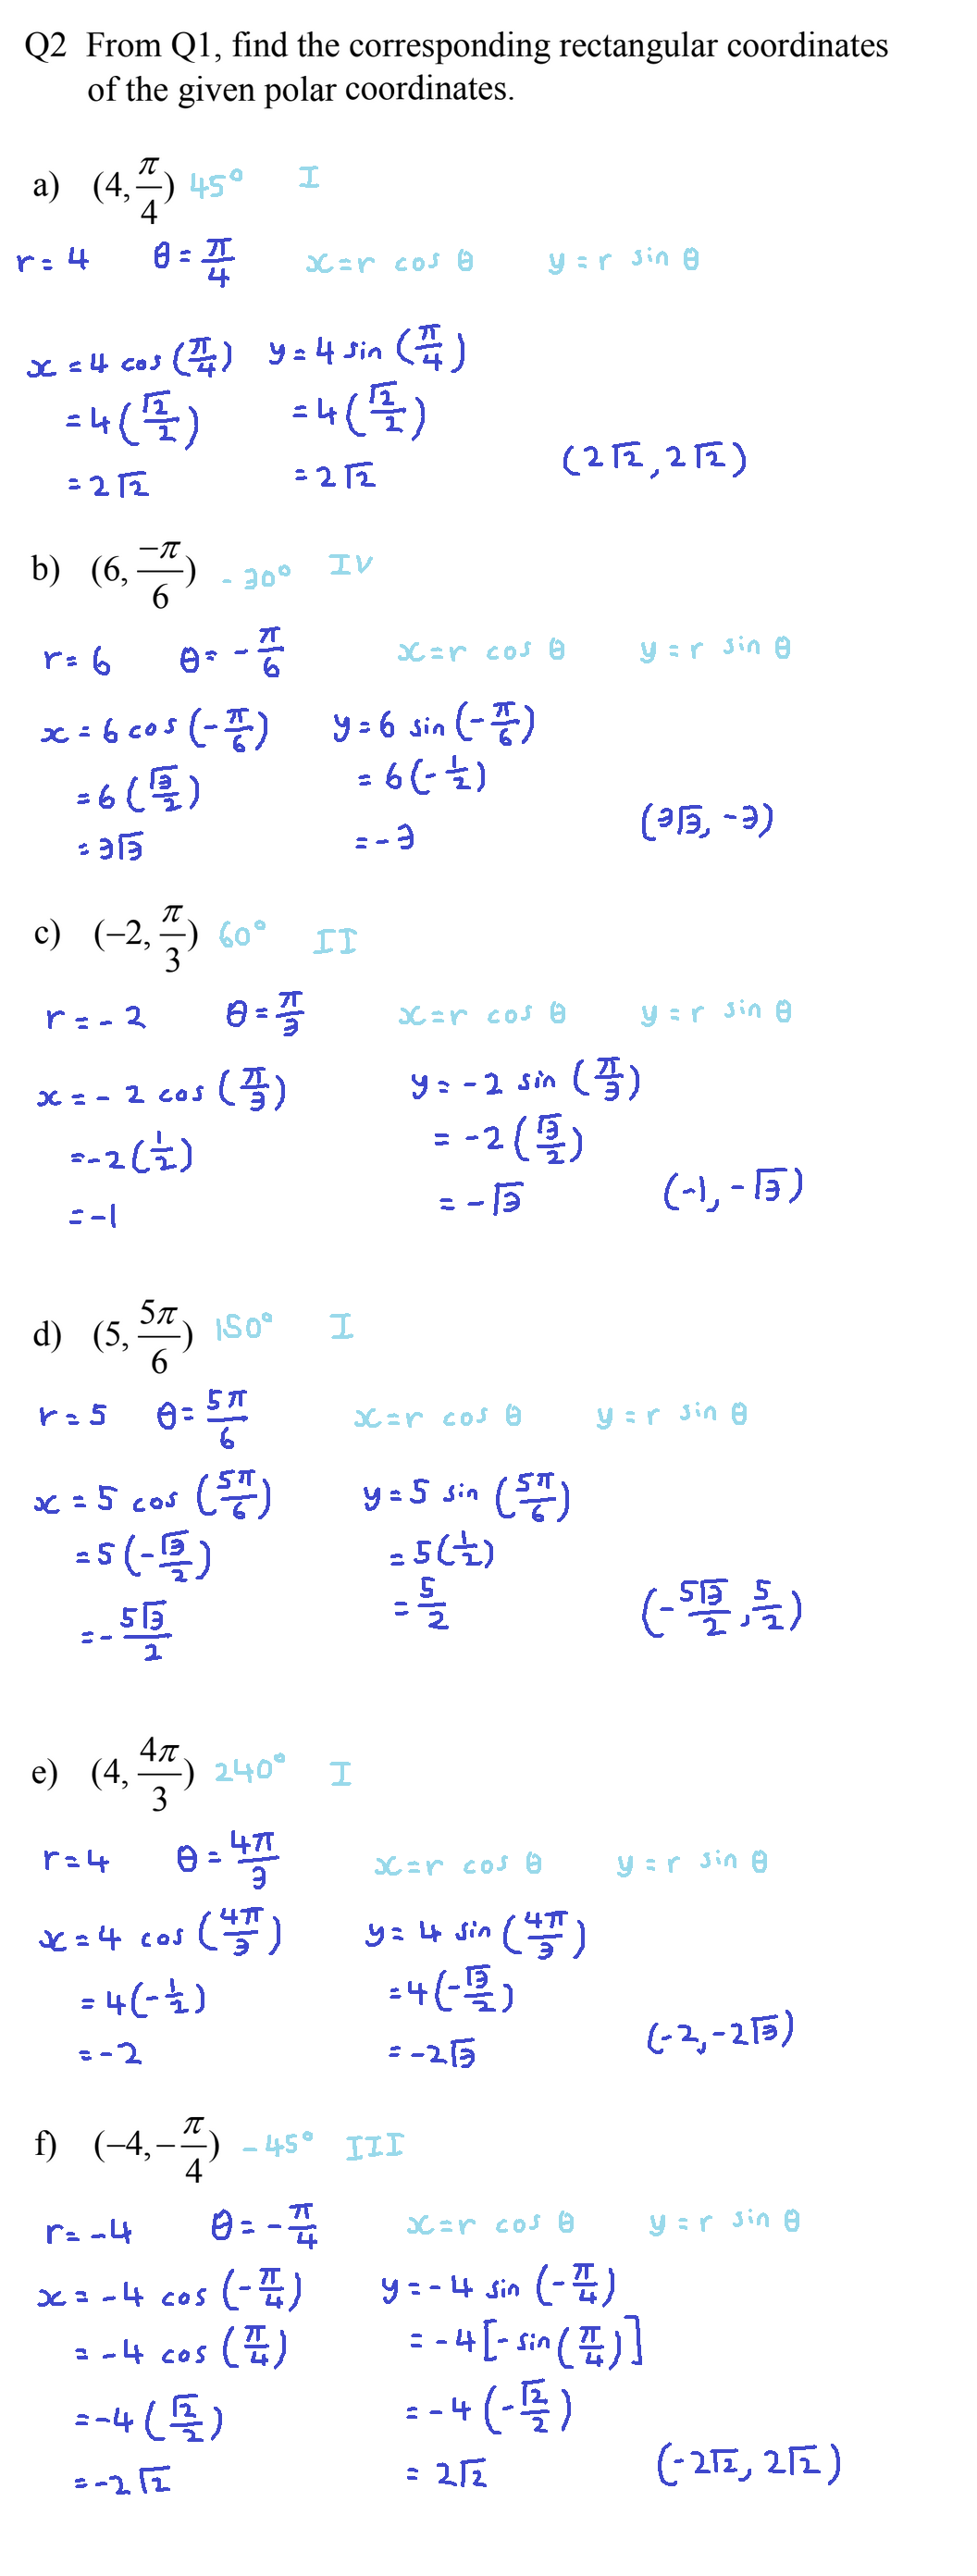 Q2 From Q1, find the corresponding rectangular coordinates
of the given polar coordinates.
a) (4, π/4) 45° I
r = 4 θ = π/4 x = r cos θ y = r sin θ
x = 4 cos (π/4) y = 4 sin (π/4)
= 4 (√2/2) = 4 (√2/2)
= 2√2 = 2√2 (2√2, 2√2)
b) (6, -π/6) -30° IV
r = 6 θ = -π/6 x = r cos θ y = r sin θ
x = 6 cos (-π/6) y = 6 sin (-π/6)
= 6 (√3/2) = 6 (-1/2)
= 3√3 = -3 (3√3, -3)
c) (-2, π/3) 60° II
r = -2 θ = π/3 x = r cos θ y = r sin θ
x = -2 cos (π/3) y = -2 sin (π/3)
= -2 (1/2) = -2 (√3/2)
= -1 = -√3 (-1, -√3)
d) (5, 5π/6) 150° I
r = 5 θ = 5π/6 x = r cos θ y = r sin θ
x = 5 cos (5π/6) y = 5 sin (5π/6)
= 5 (-√3/2) = 5 (1/2)
= -5√3/2 = 5/2 (-5√3/2, 5/2)
e) (4, 4π/3) 240° I
r = 4 θ = 4π/3 x = r cos θ y = r sin θ
x = 4 cos (4π/3) y = 4 sin (4π/3)
= 4 (-1/2) = 4 (-√3/2)
= -2 = -2√3 (-2, -2√3)
f) (-4, -π/4) -45° III
r = -4 θ = -π/4 x = r cos θ y = r sin θ
x = -4 cos (-π/4) y = -4 sin (-π/4)
= -4 cos (π/4) = -4 [-sin (π/4)]
= -4 (√2/2) = -4 (-√2/2)
= -2√2 = 2√2 (-2√2, 2√2)